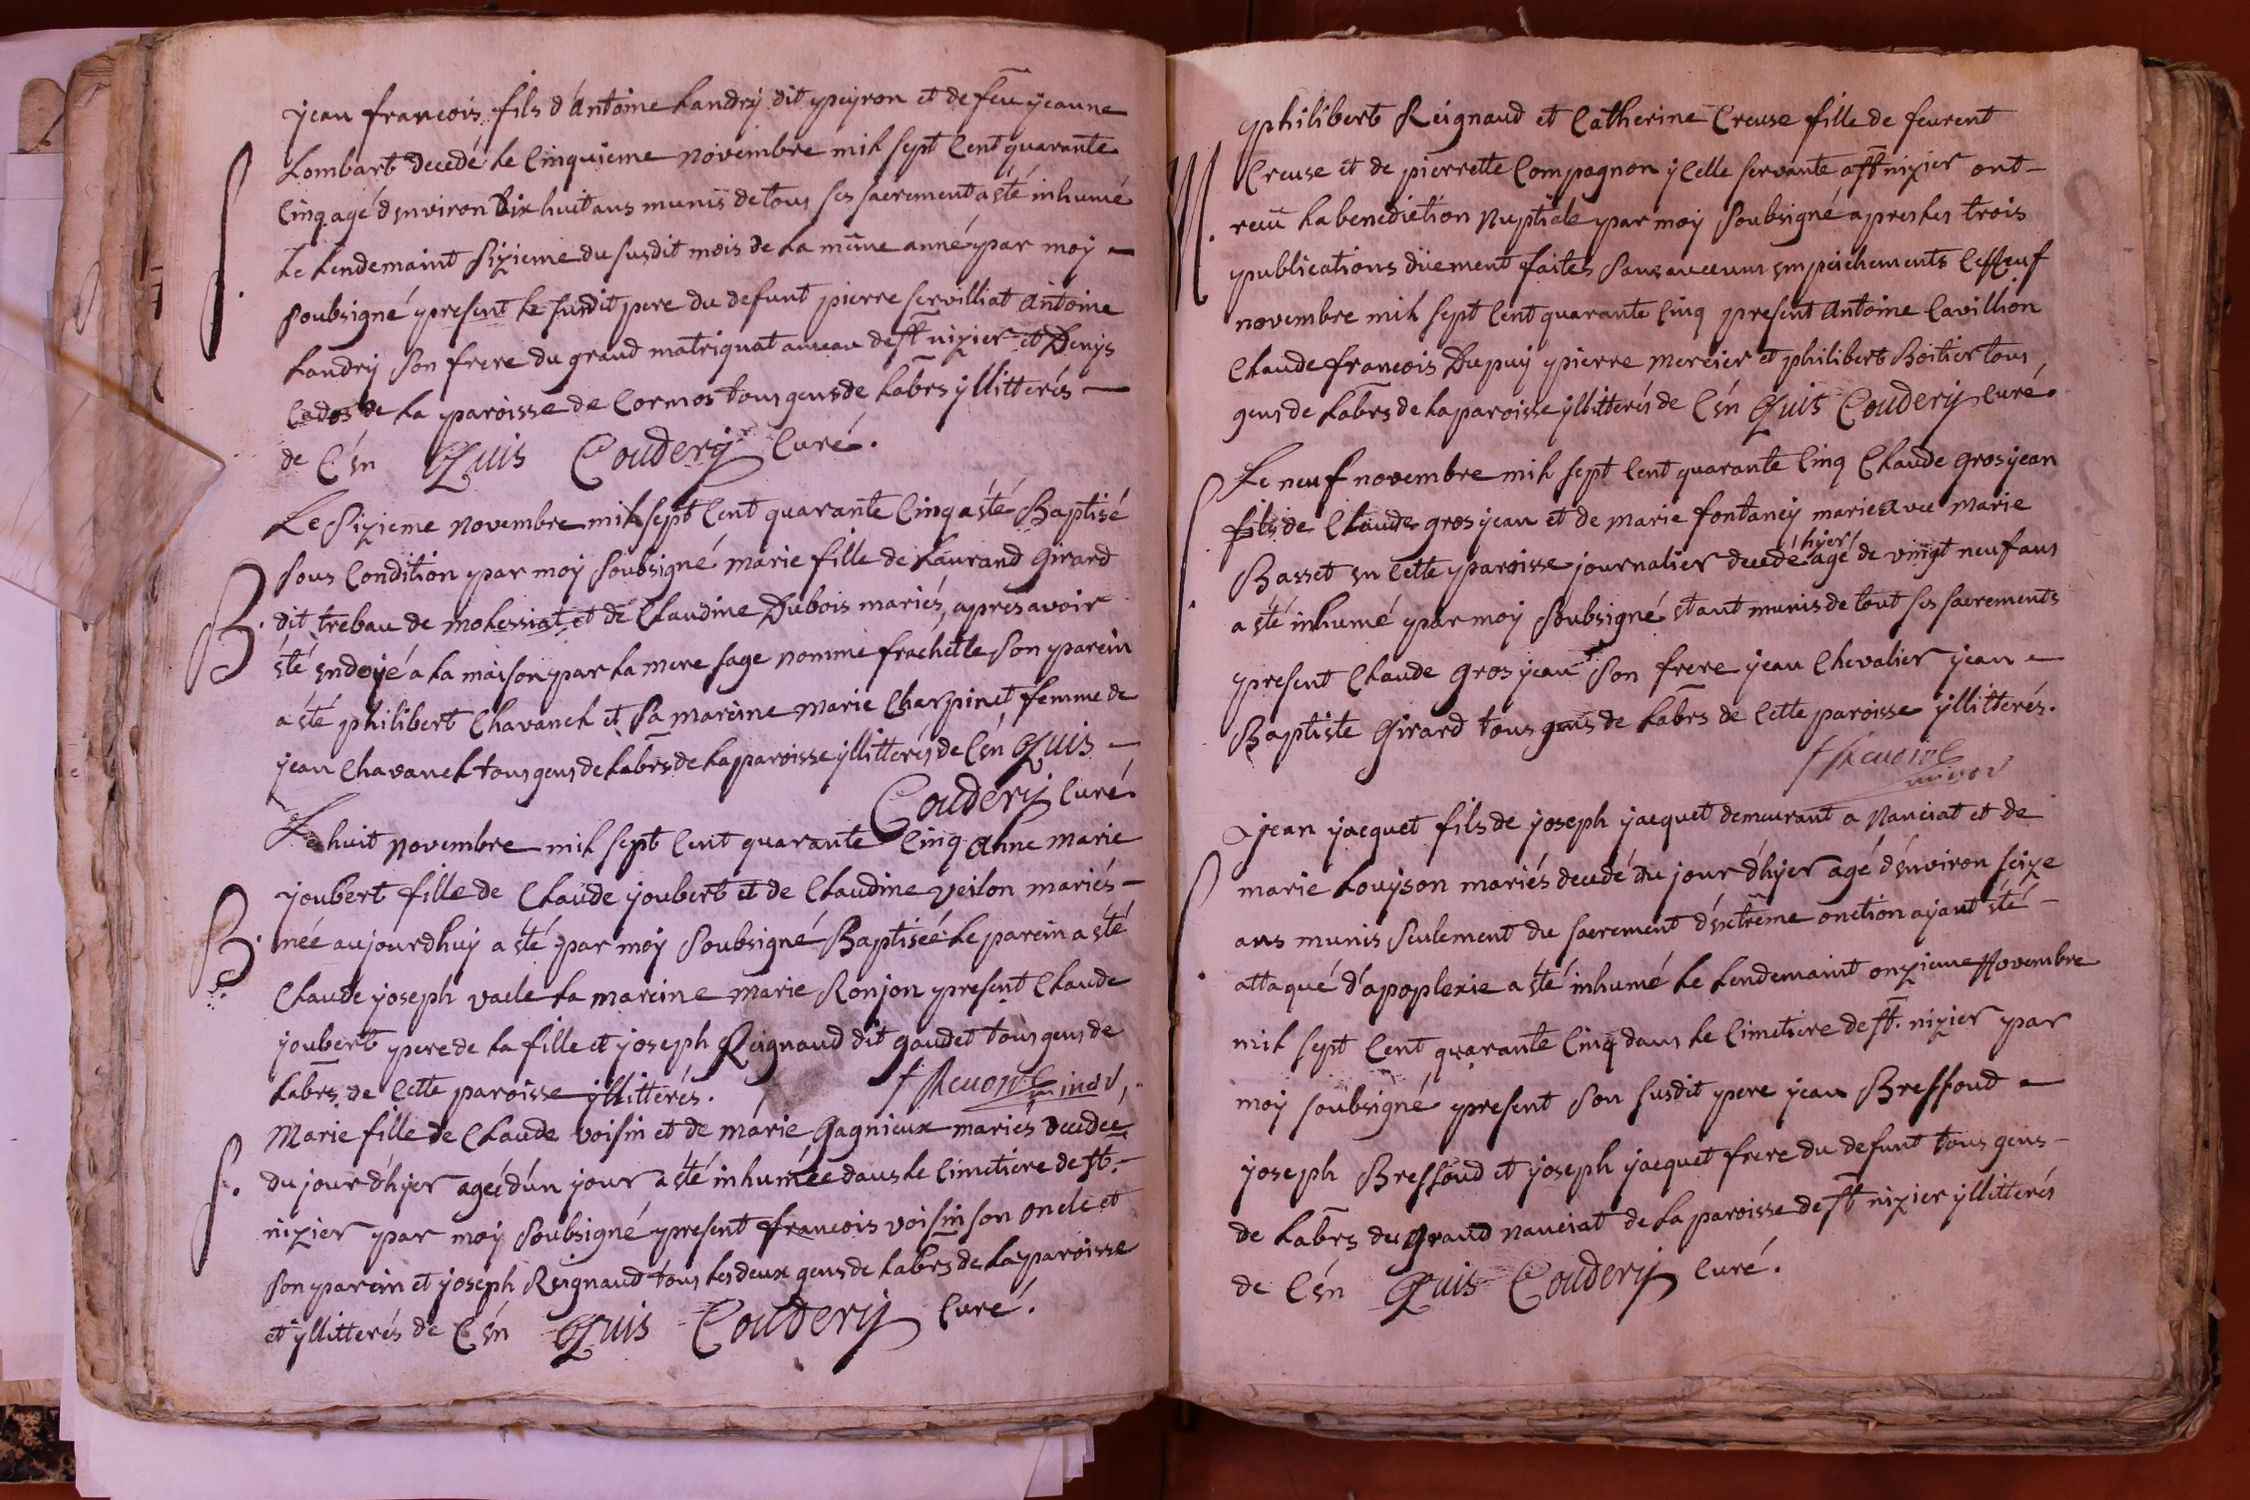 jean francois fils d'Antoine Landry dit peyron et de feu jeanne
S. Lombart decedé Le Cinquieme novembre mil sept Cent quarante
Cinq agé d'environ dix huit ans munis de tous ses sacrement a été inhumé
Le Lendemaint Sizieme du susdit mois de La même anné par moy
soubsigné present Le susdit pere du defunt pierre servilliat Antoine
Landry son frere du grand matriquat ameau de st nizier et Denys
de La paroisse de Cormos tous gens de Labrs yllitterés
de C'en Louis Coudery Curé.
Le Sizieme novembre mil sept Cent quarante Cinq a été Baptisé
sous Condition par moy soubsigné marie fille de Laurand Girard
B. dit trebau de et de Claudine Dubois mariés, apres avoir
été endoyé a La maison par La mere sage nommé frachette son parein
a été philibert Chavanel et sa mareine marie Charpinet femme de
jean Chavanel tous gens de Labrs de La paroisse yllitterés de C'en Louis
Coudery Curé.
Le huit novembre mil sept Cent quarante Cinq Anne marie
joubert fille de Claude joubert et de Claudine veilon mariés
B. née aujourdhuy a été par moy soubsigné Baptiséé Le parein a été
Claude joseph vacle La mareine marie Ronjon present Claude
joubert pere de La fille et joseph Reignaud dit gaudet tous gens de
Labrs de Cette paroisse yllitterés.
Marie fille de Claude voisin et de marie Gagnieux mariés decedee
S. du jour d'hyer ageé d'un jour a été inhumée dans Le Cimetiere de st.
nizier par moy soubsigné present francois voisin son oncle et
son parein et joseph Reignaud tous Les deux gens de Labrs de La paroisse
et yllitterés de C'en Louis Coudery Curé.
philibert Reignaud et Catherine Creuse fille de feurent
M. Creuse et de pierrette Compagnon yCelle servante a st nizier ont
reçu La benediction Nuptiale par moy soubsigné apres Les trois
publications düement faites sans aucuns empeichements Le neuf
novembre mil sept Cent quarante Cinq present Antoine Cavillion
Claude francois Dupuy pierre mercier et philibert Boitier tous
gens de Labrs de La paroisse yllitterés de C'en Louis Coudery Curé.
Le neuf novembre mil sept Cent quarante Cinq Claude grosjean
S. fils de Claude grosjean et de marie fontaney marié avec marie
Basset en Cette paroisse journalier decedé hyer agé de vingt neuf ans
a été inhumé par moy soubsigné etant munis de tout ses sacrements
present Claude grosjean son frere jean Chevalier jean
Baptiste Girard tous gens de Labrs de Cette paroisse yllitterés.
jean jacquet fils de joseph jacquet demeurant a Nanciat et de
S. marie Louyson mariés decedé du jour d'hyer agé d'environ seize
ans munis seulement du sacrement d'extrême onction ayant été
attaqué d'apoplexie a été inhumé Le Lendemaint onzieme Novembre
mil sept Cent quarante Cinq dans Le Cimetiere de st. nizier par
moy soubsigné present son susdit pere jean Bressoud
joseph Bressoud et joseph jacquet frere du defunt tous gens
de Labrs du Grand nanciat de La paroisse de st nizier yllitterés
de C'en Louis Coudery Curé.